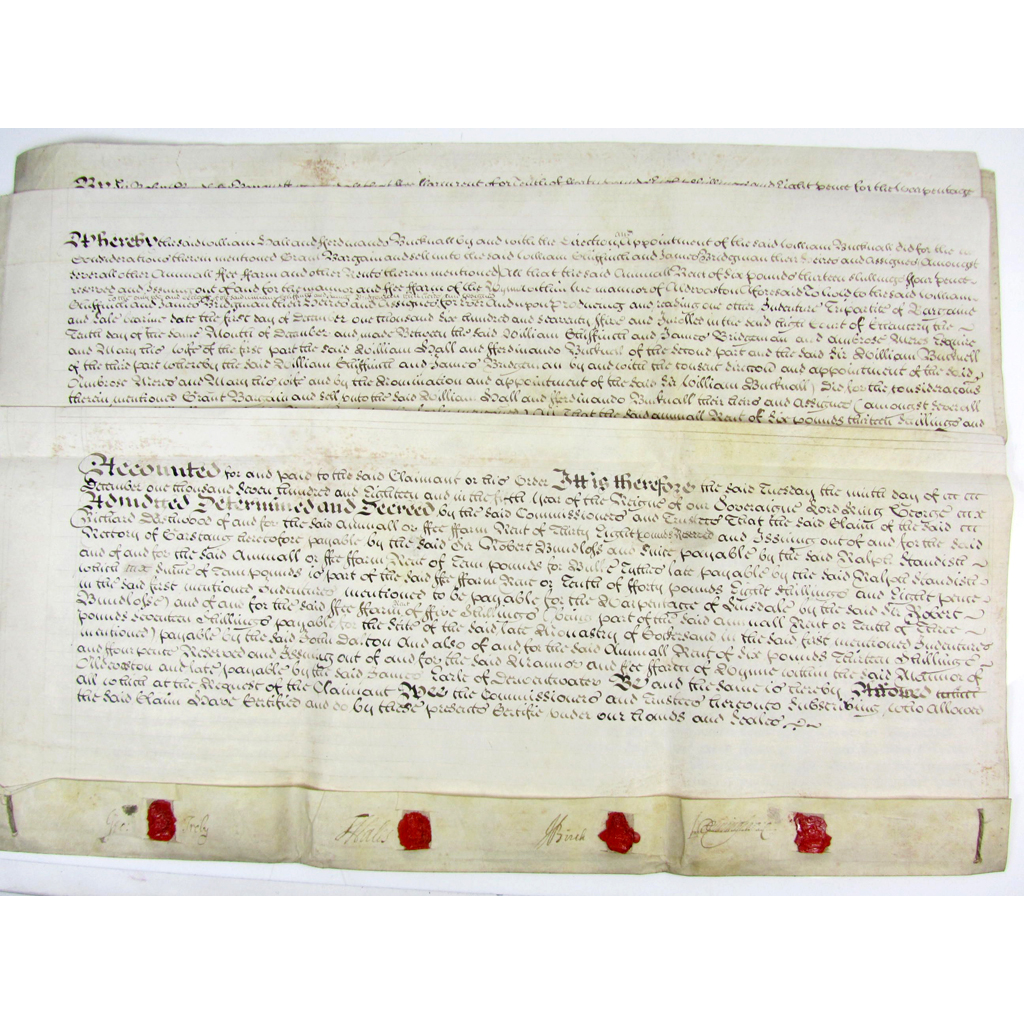 Whereby the said William Hall and Fferdinando Bucknall by and with the Direction and Appointment of the said William Bucknall did for the
Considerations therein mentioned Grant Bargain and sell unto the said William Chiffinch and James Bridgman their Heires and Assignes Amongst
severall other Annuall ffee ffarm and other Rents therein mentioned All that the said Annuall Rent of Six pounds thirteen shillings ffour pence
reserved and Issuing out of and for the Mannor and ffee ffarm of the within the Mannor of aforesaid To Hold to the said William
Chiffinch and James Bridgman their Heires and Assignes for Ever And upon Produceing and reading one other Indenture Tripartite of Bargaine
and Sale bearing date the first day of December one thousand six hundred and seaventy ffive and Inrolled in the said high Court of Chancery the
Tenth day of the same Month of December and made Between the said William Chiffinch and James Bridgman and Ambrose Meres Esquire
and Mary his wife of the first part the said William Hall and Fferdinando Bucknall of the second part and the said Sir William Bucknall
of the third part whereby the said William Chiffinch and James Bridgman by and with the consent direccon and appointment of the said
Ambrose Meres and Mary his wife and by the Nomination and appointment of the said Sir William Bucknall Did for the consideracons
therein mentioned Grant Bargain and sell unto the said William Hall and Fferdinando Bucknall their heirs and Assignes (amongst severall
All That the said annuall Rent of Six pounds thirteen shillings and
Accounted for and paid to the said Claimant or his Order Itt is therefore the said Tuesday the ninth day of
December one thousand seven hundred and Eighteen and in the fifth Year of the Reigne of our Soveraigne Lord King George
Admitted Determined and Decreed by the said Commissioners and Trustees That the said Claim of the said
Richard of and for the said Annuall or ffee ffarm Rent of Thirty Eight pounds Reserved and Issuing out of and for the said
Rectory of Garstang heretofore payable by the said Sir Robert Bindloss and since payable by the said Ralph Standish
and of and for the said Annuall or ffee ffarm Rent of Tenn pounds for late payable by the said Ralph Standish
which summe of Tenn pounds is part of the said ffee ffarm Rent or Tenth of fforty pounds Eight shillings and Eight pence
in the said first mentioned Indentures mentioned to be payable for the Warpentage of by the said Sir Robert
Bindlosse) and of and for the said ffee ffarm Rent of ffive Shillings (being part of the said Annuall Rent or Tenth of Three
pounds seventeen shillings payable for the site of the said late Monastry of Cockersand in the said first mentioned Indentures
mentioned) payable by the said John Dalton And also of and for the said Annuall Rent of Six pounds Thirteen shillings
and ffour pence Reserved and Issuing out of and for the said Mannor and ffee ffarm of within the said Mannor of
and late payable by the said James Earle of Derwentwater Be and the same is hereby Allowed
all which at the Request of the Claimant Wee the Commissioners and Trustees hereunto Subscribing who allowed
the said Claim Have Certified and do by these presents Certifie under our hands and Seales
Geo: Treby FHales JBirch